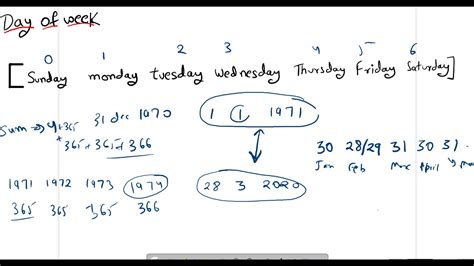 Day of week
0 1 2 3 4 5 6
[Sunday monday tuesday wednesday Thursday Friday Saturday]
Sum → 4+365 31 dec 1970
+365+365+366
1 1 1971
30 28/29 31 30 31
Jan Feb Mar April
1971 1972 1973 1974
365 365 365 366
28 3 2020